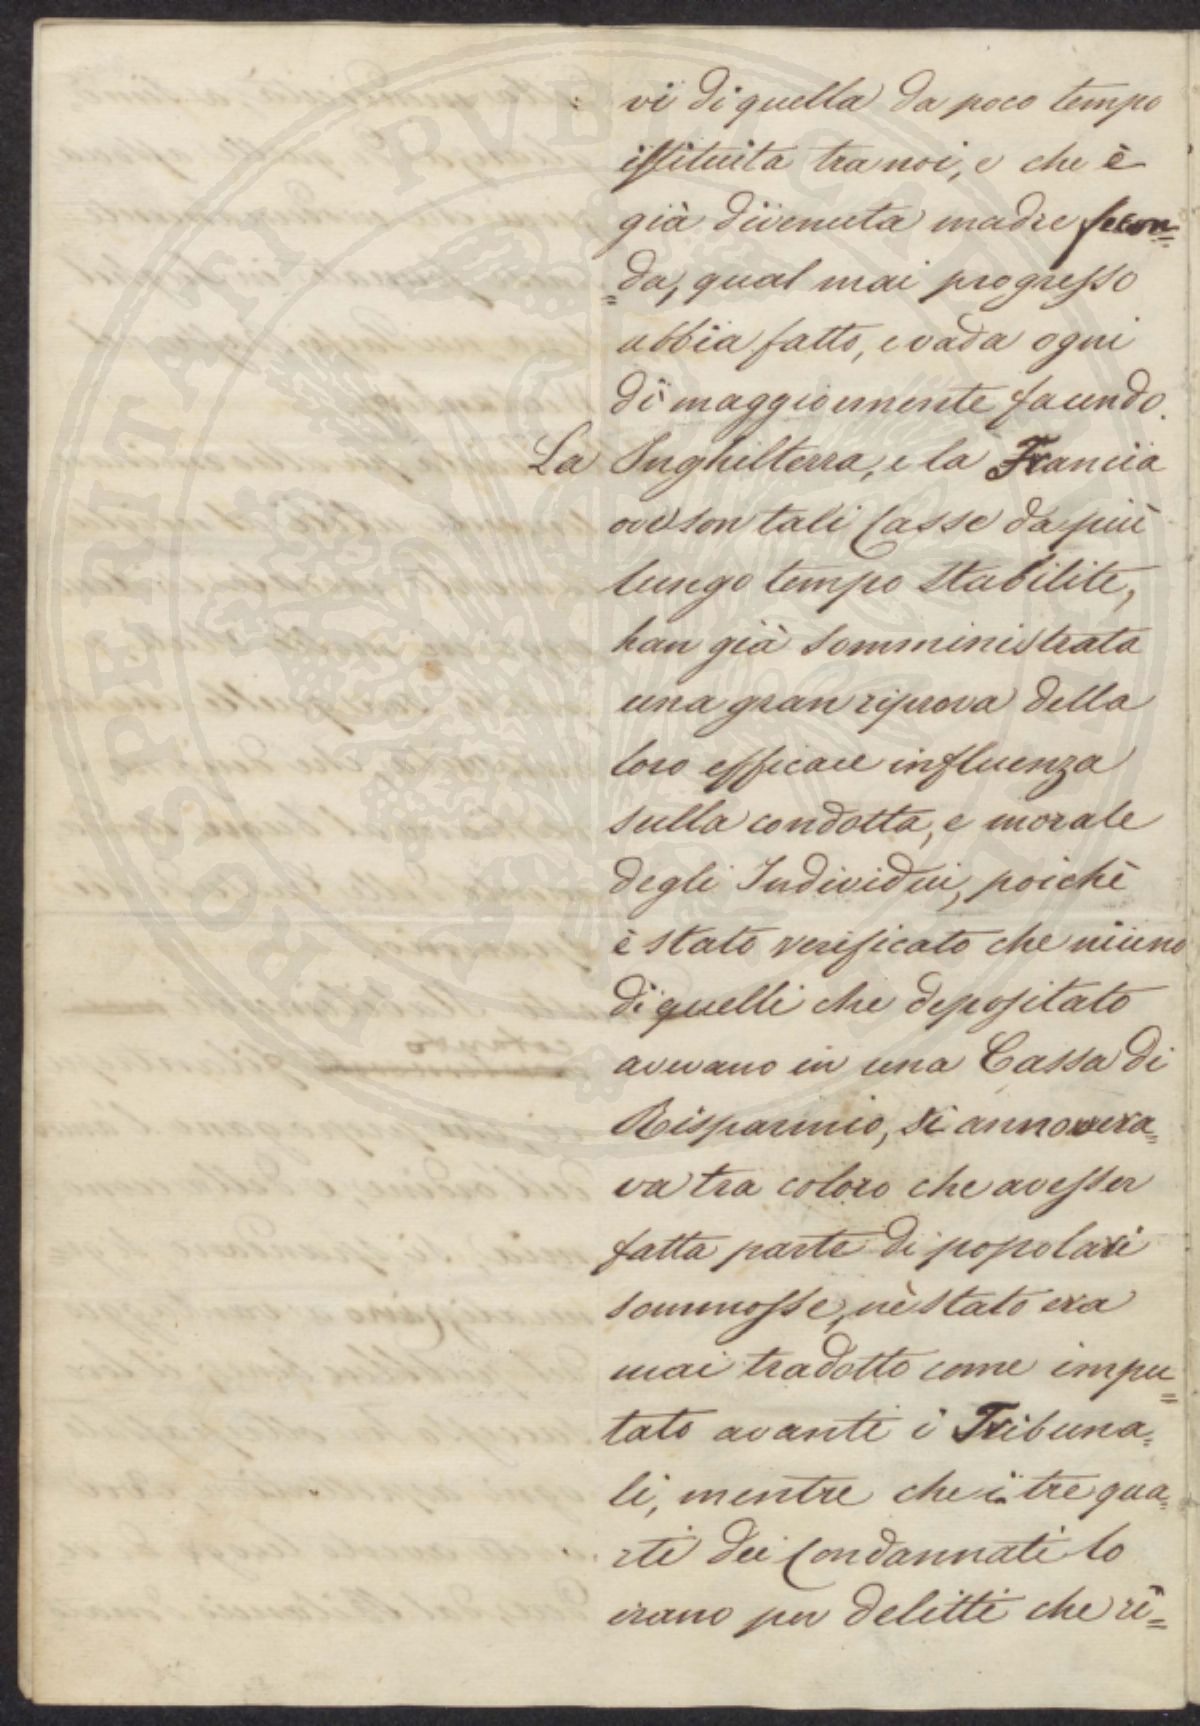 vi di quella da poco tempo
istituita tra noi, e che è
già divenuta madre fecon=
=da, qual mai progresso
abbia fatto, e vada ogni
dì maggiormente facendo.
La Inghilterra, e la Francia
ove son tali Casse da più
lungo tempo stabilite,
han già somministrata
una gran riprova della
loro efficace influenza
sulla condotta, e morale
degli Individui, poichè
è stato verificato che niuno
di quelli che depositato
avevano in una Cassa di
Risparmio, si annovera=
va tra coloro che avesser
fatta parte di popolari
sommosse, nè stato era
mai tradotto come impu=
tato avanti i Tribuna=
li, mentre che i tre qua=
rti dei Condannati lo
erano per delitti che ri=
PROSPERITATI PVBLICAE